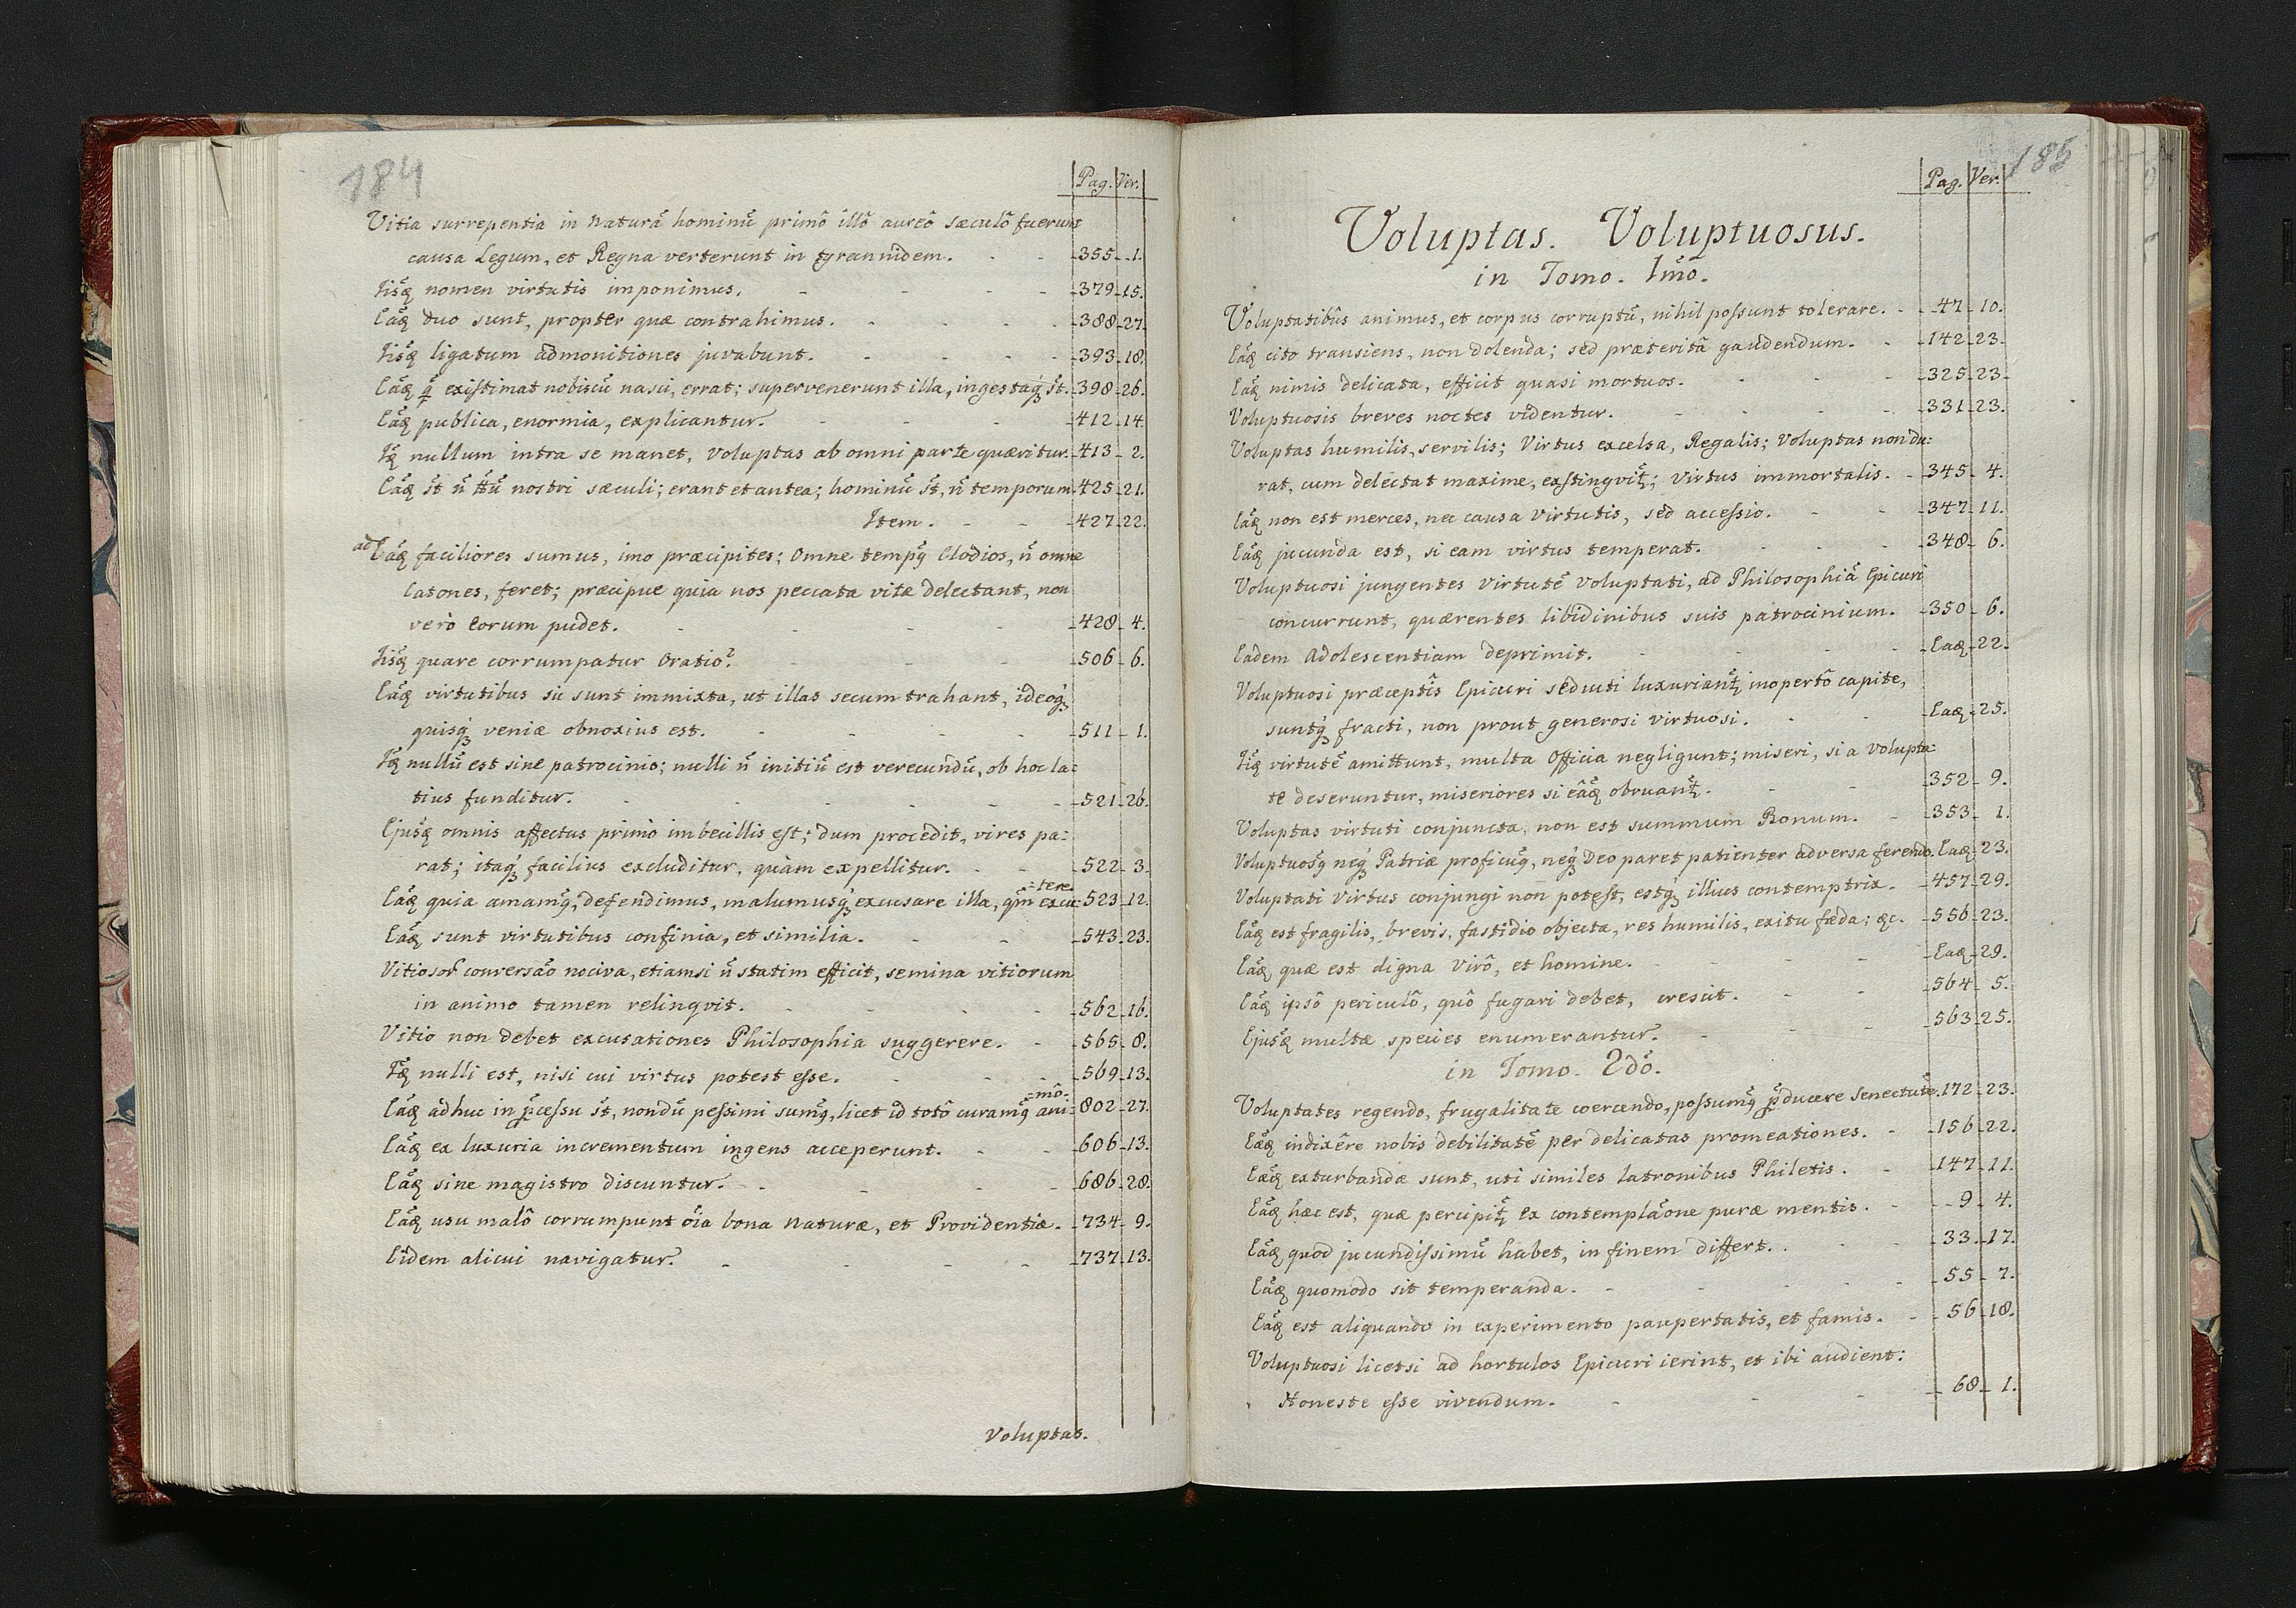 184
Pag. Ver.
Vitia surrepentia in Naturâ hominũ primô illô aureô sæculô fuerunt
causa Legum, et Regna verterunt in tyrannidem. - - 355. 1.
Iisdẽ nomen virtutis imponimus. - - - - 379. 15.
Eãdẽ duo sunt, propter quæ contrahimus. - - - 388. 27.
Iisdẽ ligatum admonitiones juvabunt. - - - 393. 18.
existimat nobiscũ nasci, errat; supervenerunt illa, ingestaq; st̃. 398. 26.
publica, enormia, explicantur. - - - 412. 14.
nullum intra se manet, Voluptas ab omni parte quæritur. 413. 2.
st̃ ñ ttũ nostri sæculi; erant et antea; hominũ st̃, ñ temporum. 425. 21.
Item. - - 427. 22.
ad faciliores sumus, imo præcipites; Omne tempq̃ Clodios, ñ omne
Catones, feret; præcipue quia nos peccata vitæ delectant, non
verò eorum pudet. - - - - 428. 4.
quare corrumpatur Oratio? - - - 506. 6.
virtutibus sic sunt immixta, ut illas secum trahant, ideoq;
quisq; veniæ obnoxius est. - - - - 511. 1.
nullũ est sine patrocinio; nulli ñ initiũ est verecundũ, ob hoc la:
tius funditur. - - - - - - 521. 26.
omnis affectus primò imbecillis est; dum procedit, vires pa:
rat; itaq; facilius excluditur, quàm expellitur. - - 522. 3.
=tere.
quia amamq̃, defendimus, malumusq; excusare illa, qm̃ excu: 523. 12.
sunt virtutibus confinia, et similia. - - 543. 23.
Vitiosor conversão nociva, etiamsi ñ statim efficit, semina vitiorum
in animo tamen relinqvit. - - - - 562. 16.
Vitio non debet excusationes Philosophia suggerere. - 565. 8.
nulli est, nisi cui virtus potest esse. - - - 569. 13.
=mô.
adhuc in p̃cessu st̃, nondũ pessimi sumq̃, licet id totô curamq̃ ani: 802. 27.
ex luxuria incrementum ingens acceperunt. - - 606. 13.
sine magistro discuntur. - - - - 686. 28.
usu malô corrumpunt oĩa bona Naturæ, et Providentiæ. 734. 9.
Eidem alicui navigatur. - - - - 737. 13.
Voluptas.
185
Pag. Ver.
Voluptas. Voluptuosus.
in Tomo. 1mo.
Voluptatibûs animus, et corpus corruptũ, nihil possunt tolerare. - 47. 10.
cito transiens, non dolenda; sed præteritâ gaudendum. - 142. 23.
nimis delicata, efficit quasi mortuos. - - - 325. 23.
Voluptuosis breves noctes videntur. - - - - 331. 23.
Voluptas humilis, servilis; Virtus excelsa, Regalis; Voluptas non du:
rat, cum delectat maxime, exstingvitr̃; Virtus immortalis. - 345. 4.
non est merces, nec causa Virtutis, sed accessio. - - 347. 11.
jucunda est, si eam virtus temperat. - - - 348. 6.
Voluptuosi jungentes Virtutẽ Voluptati, ad Philosophiã Epicuri
concurrunt, quærentes libidinibus suis patrocinium. - 350. 6.
Eadem Adolescentiam deprimit. - - - - Eadẽ. 22.
Voluptuosi præceptîs Epicuri seducti luxuriantr̃ inopertô capite,
suntq; fracti, non prout generosi virtuosi. - - Eadẽ. 25.
virtutẽ amittunt, multa Officia negligunt; miseri, si a Volupta:
te deseruntur, miseriores si eâdẽ obruantr̃. - - 352. 9.
Voluptas virtuti conjuncta, non est summum Bonum. - 353. 1.
Voluptuosq̃ neq; Patriæ proficuq̃, neq; Deo paret patienter adversa ferendo. Eadẽ. 23.
Voluptati Virtus conjungi non potest, estq; illius contemptrix. - 457. 29.
est fragilis, brevis, fastidio objecta, res humilis, exitu fæda; &c. - 556. 23.
quæ est digna Virô, et homine. - - - Eadẽ. 29.
ipsô periculô, quô fugari debet, crescit. - - 564. 5.
multæ species enumerantur. - - - 563. 25.
in Tomo. 2dô.
Voluptates regendo, frugalitate coercendo, possumq̃ p̃ducere Senectutẽ. 172. 23.
indixêre nobis debilitatẽ per delicatas promeationes. - 156. 22.
exturbandæ sunt, uti similes latronibus Philetis. - 147. 11.
hæc est, quæ percipitr̃ ex contemplãone puræ mentis. - 9. 4.
quod jucundissimũ habet, in finem differt. - - 33. 17.
quomodo sit temperanda. - - - - 55. 7.
est aliquando in experimento paupertatis, et famis. - 56. 18.
Voluptuosi licetsi ad hortulos Epicuri ierint, et ibi audient:
Honeste esse vivendum. - - - 68. 1.